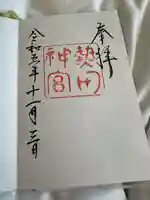 奉拝
熱田神宮
令和五年十一月三日